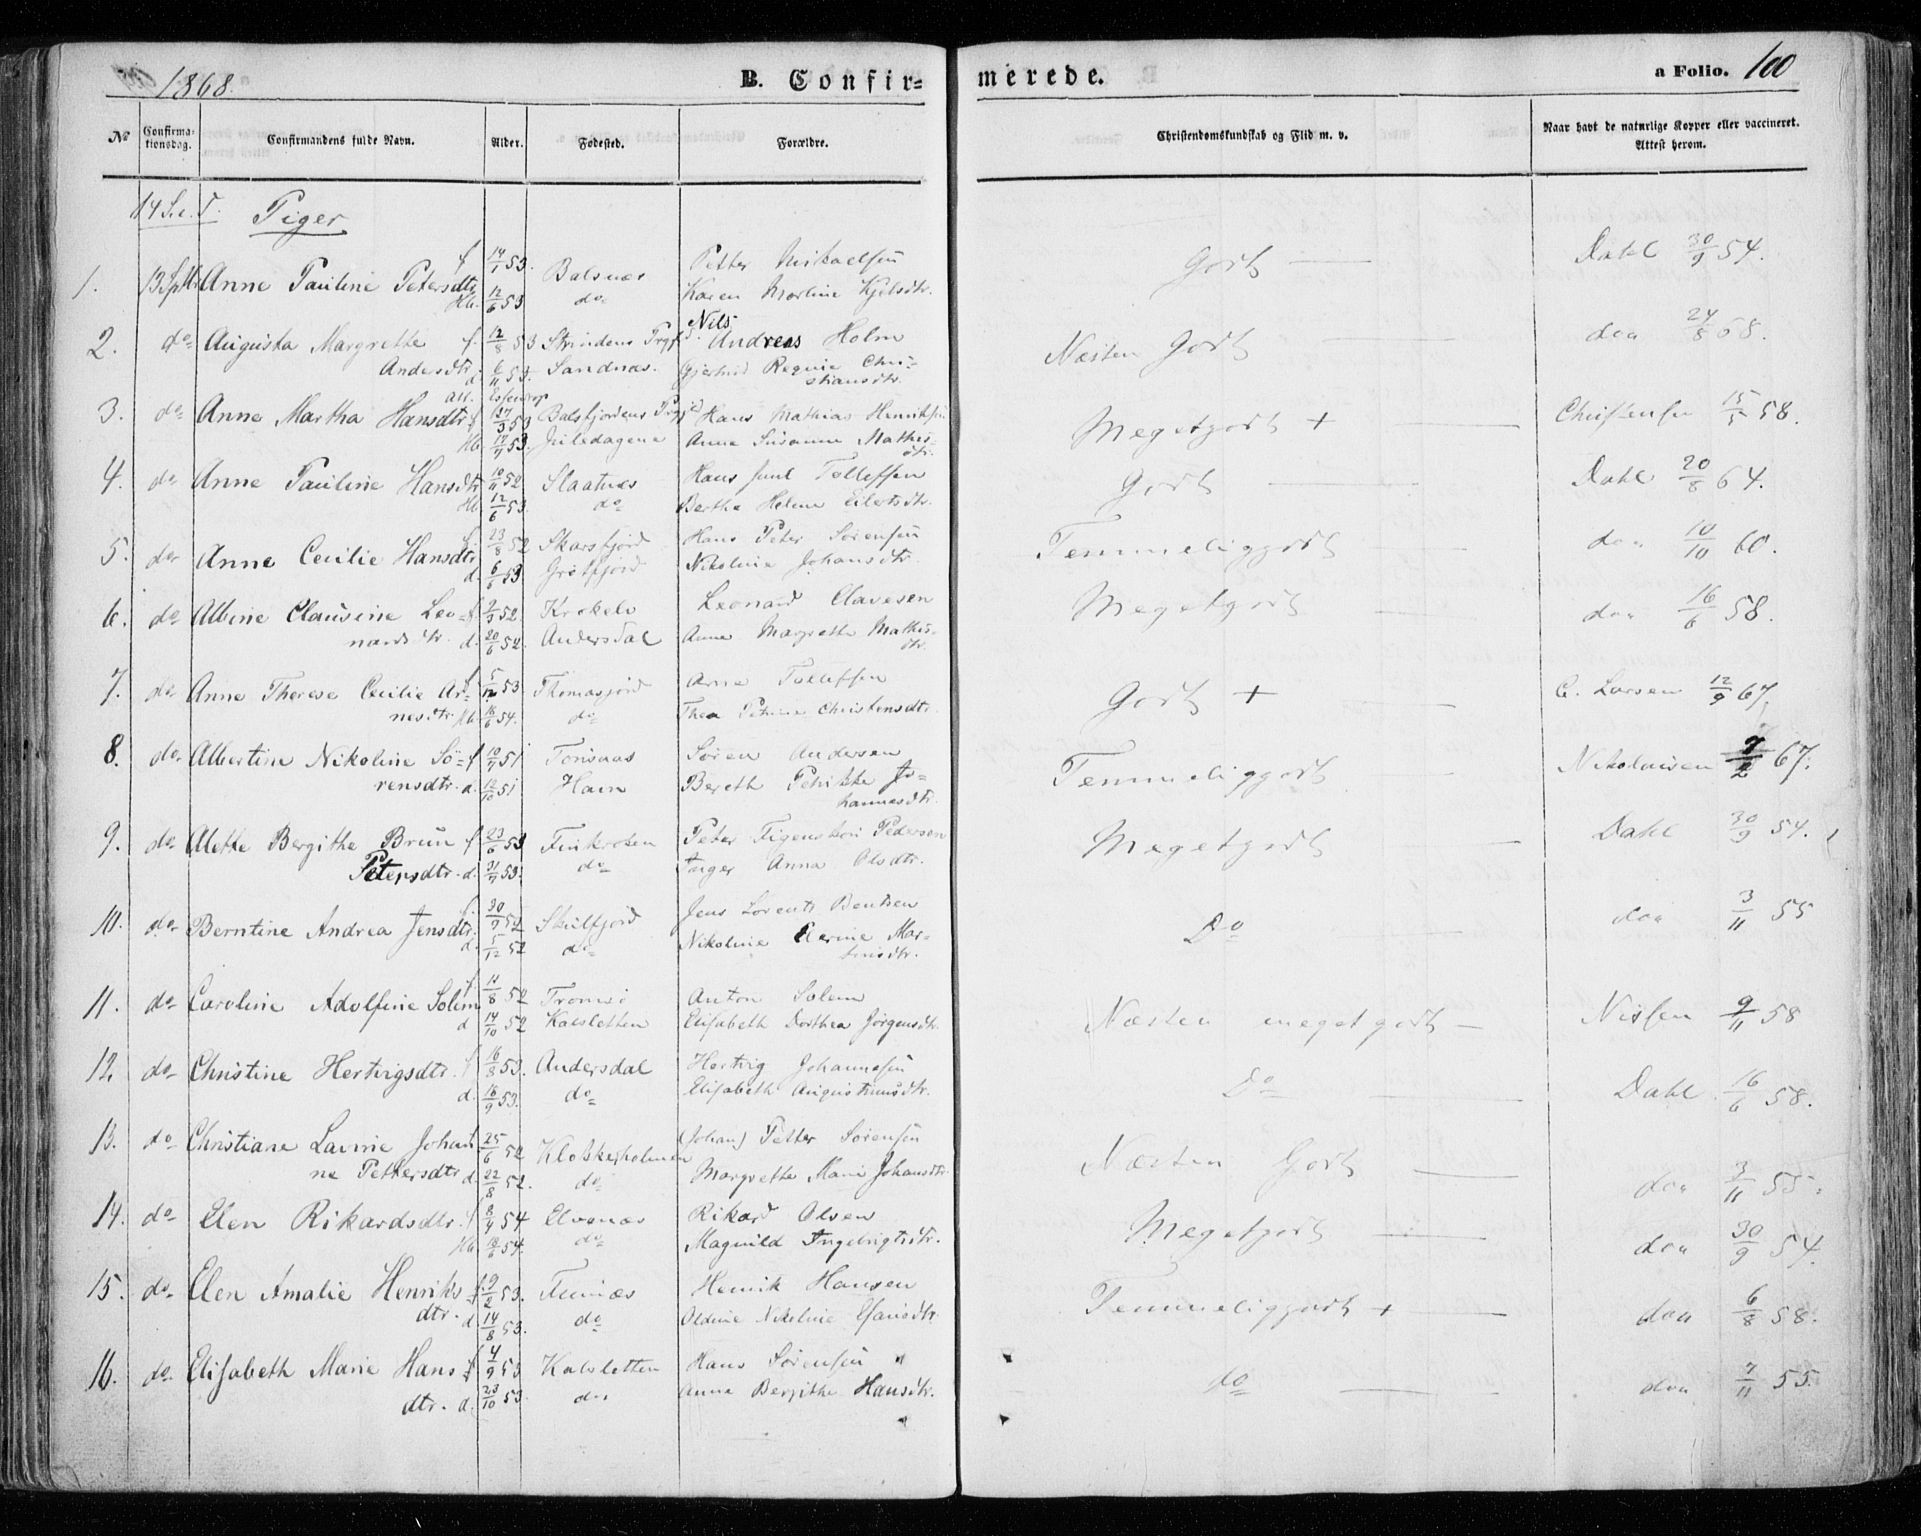 1868.
B. Confir-
merede.
a Folio. 100
No
Confirma-
tionsdag.
Confirmandens fulde Navn.
Alder.
Fødested.
Forældre.
Christendomskundskab og Flid m. v.
Naar havt de naturlige Kopper eller vaccineret.
Attest herom.
Piger
1. 13 Anne Pauline Petersdtr f 14/1 53. Balsnæs Petter Mikaelsen Godt Dahl 30/9 54.
Hb. 12/6 53 do Karen Martine Kjelsdtr.
2. do Augusta Margrethe f. 12/8 53 Strindens Nils Andreas Holm Næsten Godt do 24/8 68.
Andersdtr. d. 6/11 53. Sandnæs. Regine Chri-
stiansdtr.
3. do Anne Martha Hansdtr f Balsfjordens Hans Mathias Henriksen Megetgodt + Christensen 15/5 58.
Hb. Anne Susanna Mathis-
dtr.
4. do Anne Pauline Hansdtr 10/11 52 Slaatnæs Hans Juul Tolleffsen Godt Dahl 20/8 64.
Hb 12/6 53. do Bertha Helene Eilertsdtr.
5. do Anne Cecilie Hansdtr f. 23/8 52 Skarsfjord Hans Peter Sørensen Temmeliggodt do 10/10 60.
d. 6/6 53 Grøtfjord Nikoline Johansdtr.
6. do Albine Clausine Leo- f 52. Krokelv Leonard Clavesen Megetgodt do 16/6 58.
nards dtr. d. 20/6 52. Andersdal Anne Margrethe Mathis-
dtr.
7. do Anne Therese Cecilie Ar- f 5/12 53 Thomasjord Arne Tolleffsen Godt + C. Larsen 12/9 67,
nesdtr. Hb 16/6 54. do Thea Petrine Christensdtr.
8. do Albertine Nikoline Sö- f 51 Tonsaas Søren Andersen Temmeliggodt Nikolaisen 7/2 67.
rensdtr. d. 12/10 51 Havn Bereth Petrikke Jo-
hannesdtr.
9. do Alette Bergithe Brun f 23/6 53 Finkroken Peter Figenskou Pedersen Megetgodt Dahl 30/9 54.
Petersdtr. d. 53. do Inger Anna Olsdtr.
10. do Berntine Andrea Jensdtr. f. 30/9 52 Skulfjord Jens Lorents Bentsen Do do 3/11 55
d. 5/12 52 do Nikoline Elerine Mar-
tinsdtr.
11. do Caroline Adolfine Solem f 52 Tromsö Anton Solem Næsten megetgodt Nissen 9/11 58
d 14/10 52 Kalsletten Elisabeth Dorthea Jörgensdtr.
12. do Christine Hertvigsdtr. f 16/8 53. Andersdal Hertvig Johannesen Do Dahl 16/6 58.
d. 16/9 53. do Elisabeth Augustinusdtr.
13. do Christiane Lavine Johan- f 25/6 52 Klokkerholmen (Johan) Petter Sørensen Næsten Godt do 3/11 55.
ne Pettersdtr d. 22/8 52. do Margrethe Marie Johansdtr.
14. do Elen Rikardsdtr. f 54 Elvenæs Rikard Olsen Megetgodt do 30/9 54.
Hb 54. do Magnild Ingebrigtsdtr.
15. do Elen Amalie Henriks- f. 9/2 53. Henrik Hansen Temmeliggodt + do 6/8 58.
dtr. d. 14/8 53. do Oldine Nikoline Esaiasdtr.
16. do Elisabeth Marie Hans- f 4/9 53 Kalsletten Hans Sørensen do do 7/11 55.
dtr. d. 23/10 53. do Anne Bergithe Hansdtr.